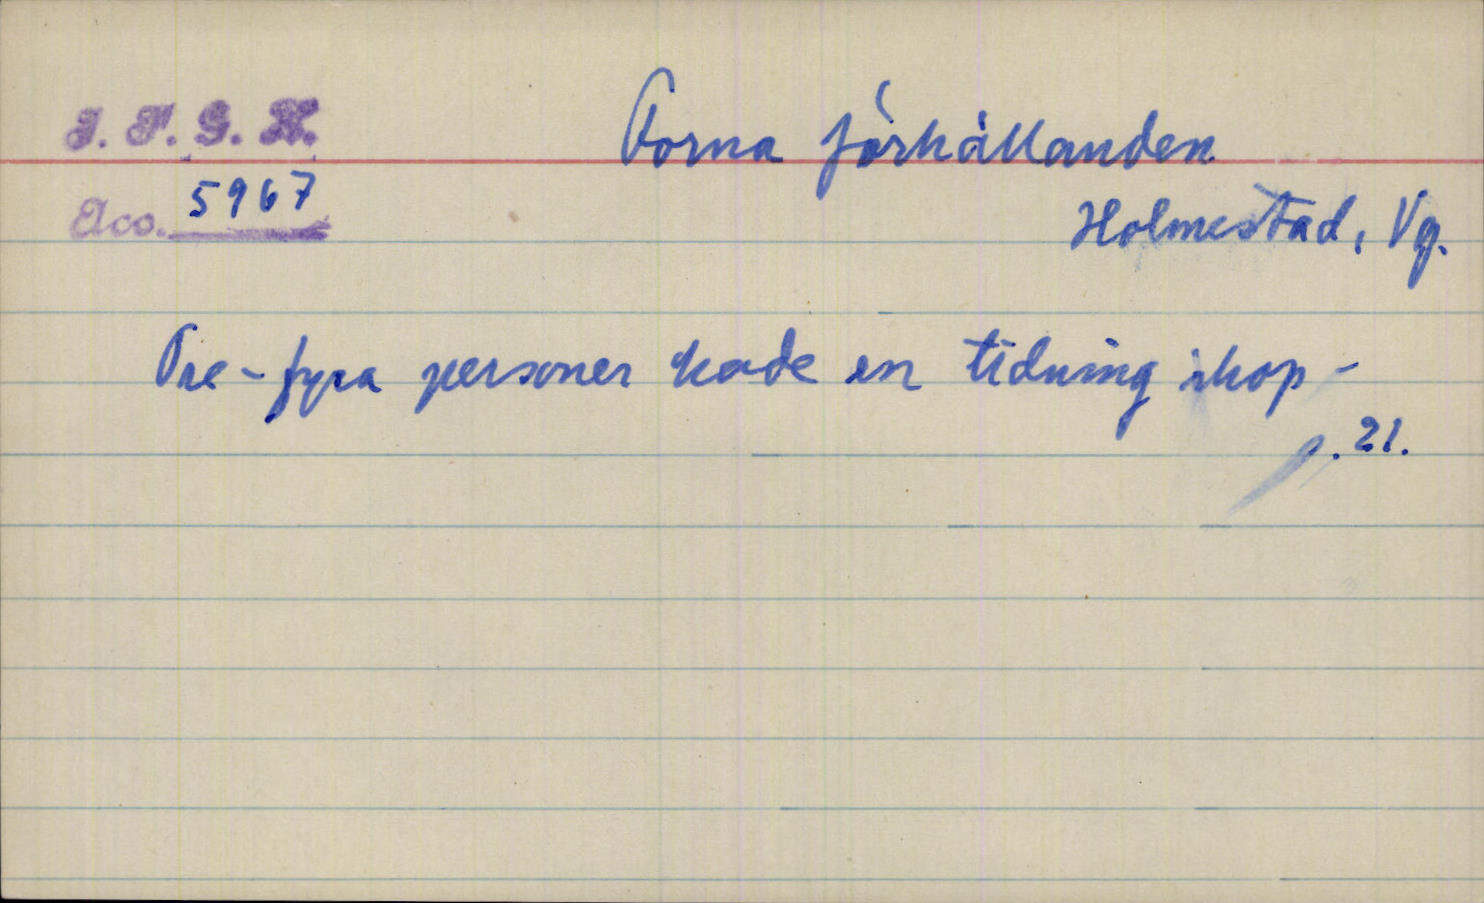 I. F. G. H.
Forna förhållanden
Acc. 5967
Holmestad, Vg.
Tre-fyra personer hade en tidning ihop -
p. 21.